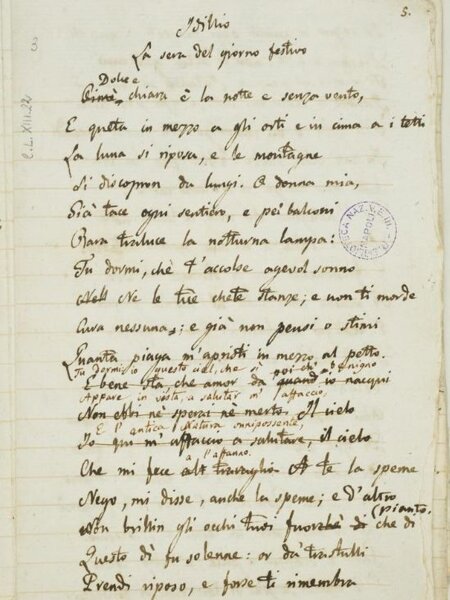 5.
Idillio
La sera del giorno festivo
Dolce e
Oimè, chiara è la notte e senza vento,
E queta in mezzo a gli orti e in cima a i tetti
La luna si riposa, e le montagne
Si discopron da lungi. O donna mia,
Già tace ogni sentiero, e pei balconi
Rara traluce la notturna lampa:
Tu dormi, chè t'accolse agevol sonno
Nell Ne le tue chete stanze; e non ti morde
Cura nessuna; e già non pensi o stimi
Quanta piaga m'apristi in mezzo al petto.
Tu dormi: io questo ciel, che sì benigno
E bene sta, che amor da quand'io nacqui
Appare in vista, a salutar m'affaccio.
Non ebbi nè sperai nè merto. Il cielo
E l'antica Natura onnipossente,
Io qui m'affaccio a salutare, il cielo
a l'affanno.
Che mi fece travaglio A te la speme
Nego, mi disse, anche la speme; e d'altro
Non brillin gli occhi tuoi fuorchè di che di (pianto.
Questo dì fu solenne: or da' trastulli
Prendi riposo, e forse ti rimembra
C.L.XIII.22
NAPOLI